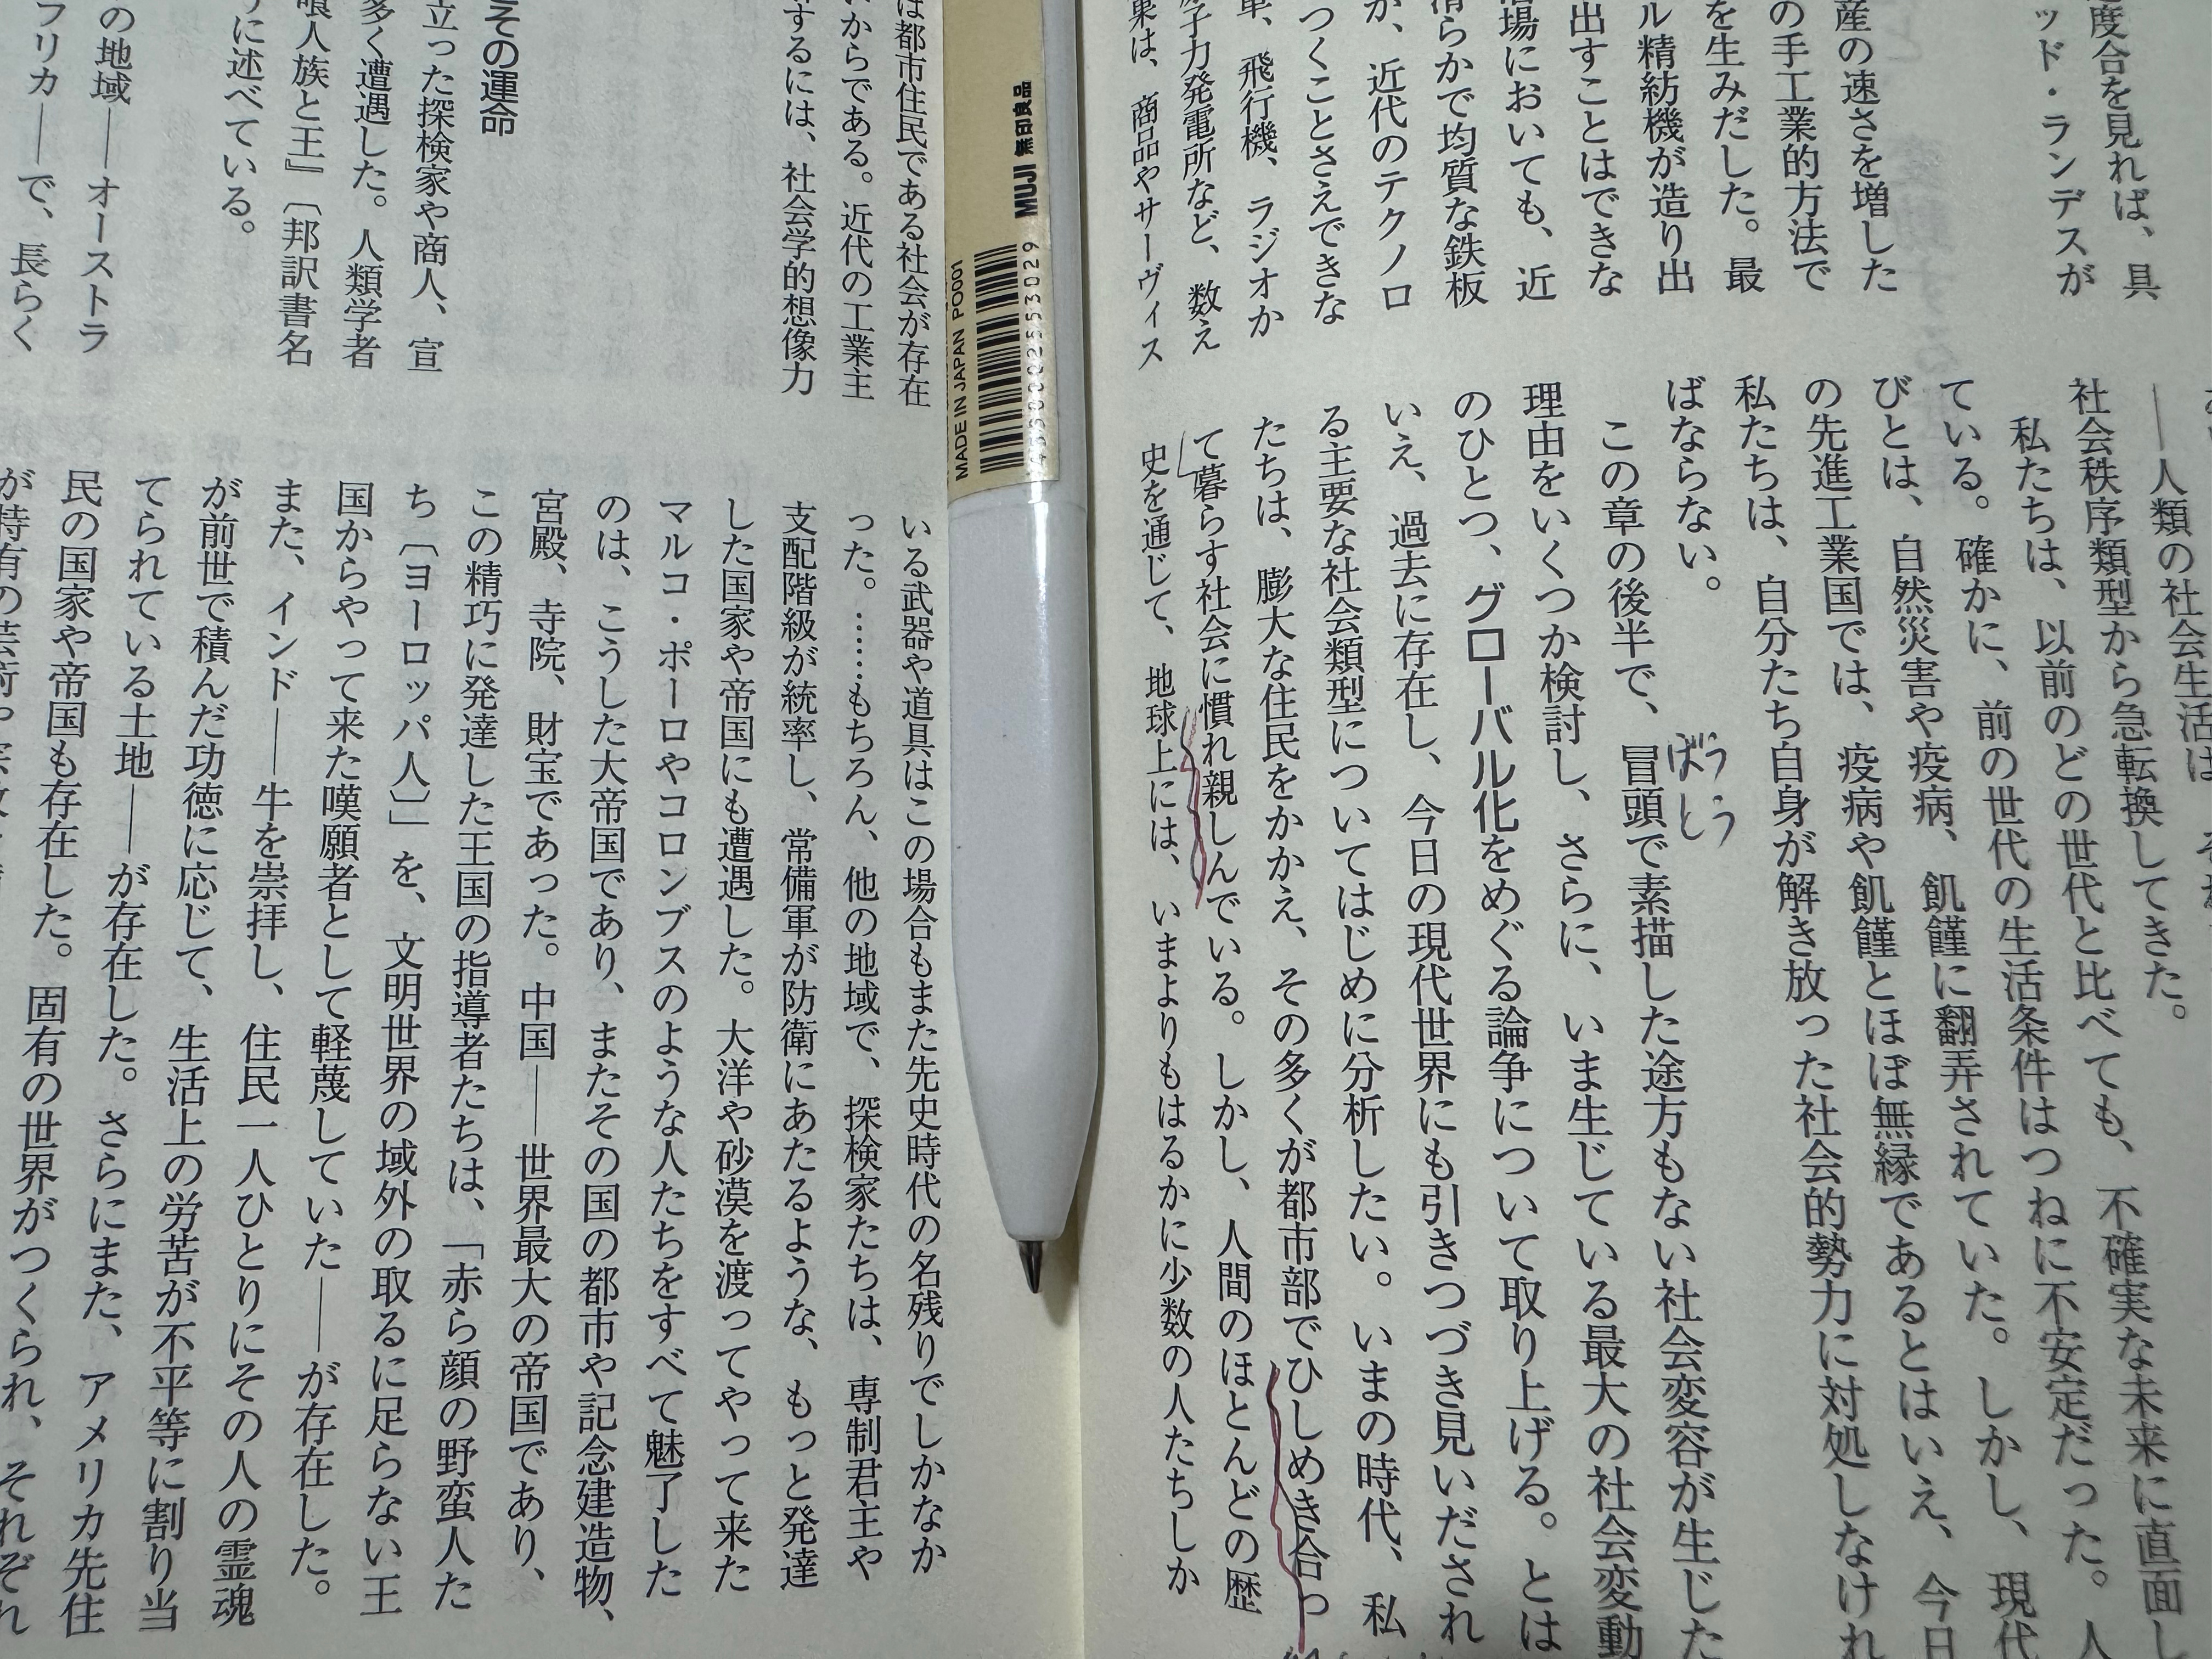 度合を見れば、具
ッド・ランデスが
産の速さを増した
の手工業的方法で
を生みだした。最
ル精紡機が造り出
出すことはできな
場においても、近
らかで均質な鉄板
か、近代のテクノロ
つくことさえできな
車、飛行機、ラジオか
子力発電所など、数え
果は、商品やサーヴィス
――人類の社会生活は
社会秩序類型から急転換してきた。
私たちは、以前のどの世代と比べても、不確実な未来に直面し
ている。確かに、前の世代の生活条件はつねに不安定だった。人
びとは、自然災害や疫病、飢饉に翻弄されていた。しかし、現代
の先進工業国では、疫病や飢饉とほぼ無縁であるとはいえ、今日
私たちは、自分たち自身が解き放った社会的勢力に対処しなけれ
ばならない。
ぼうとう
この章の後半で、冒頭で素描した途方もない社会変容が生じた
理由をいくつか検討し、さらに、いま生じている最大の社会変動
のひとつ、グローバル化をめぐる論争について取り上げる。とは
いえ、過去に存在し、今日の現代世界にも引きつづき見いだされ
る主要な社会類型についてはじめに分析したい。いまの時代、私
たちは、膨大な住民をかかえ、その多くが都市部でひしめき合っ
て暮らす社会に慣れ親しんでいる。しかし、人間のほとんどの歴
史を通じて、地球上には、いまよりもはるかに少数の人たちしか
MUJI 無印良品
4550002553029
MADE IN JAPAN PO001
は都市住民である社会が存在
からである。近代の工業主
するには、社会学的想像力
その運命
立った探検家や商人、宣
多く遭遇した。人類学者
喰人族と王』〔邦訳書名
に述べている。
の地域――オーストラ
フリカ――で、長らく
いる武器や道具はこの場合もまた先史時代の名残りでしかなか
った。……もちろん、他の地域で、探検家たちは、専制君主や
支配階級が統率し、常備軍が防衛にあたるような、もっと発達
した国家や帝国にも遭遇した。大洋や砂漠を渡ってやって来た
マルコ・ポーロやコロンブスのような人たちをすべて魅了した
のは、こうした大帝国であり、またその国の都市や記念建造物、
宮殿、寺院、財宝であった。中国――世界最大の帝国であり、
この精巧に発達した王国の指導者たちは、「赤ら顔の野蛮人た
ち〔ヨーロッパ人〕」を、文明世界の域外の取るに足らない王
国からやって来た嘆願者として軽蔑していた――が存在した。
また、インド――牛を崇拝し、住民一人ひとりにその人の霊魂
が前世で積んだ功徳に応じて、生活上の労苦が不平等に割り当
てられている土地――が存在した。さらにまた、アメリカ先住
民の国家や帝国も存在した。固有の世界がつくられ、それぞれ